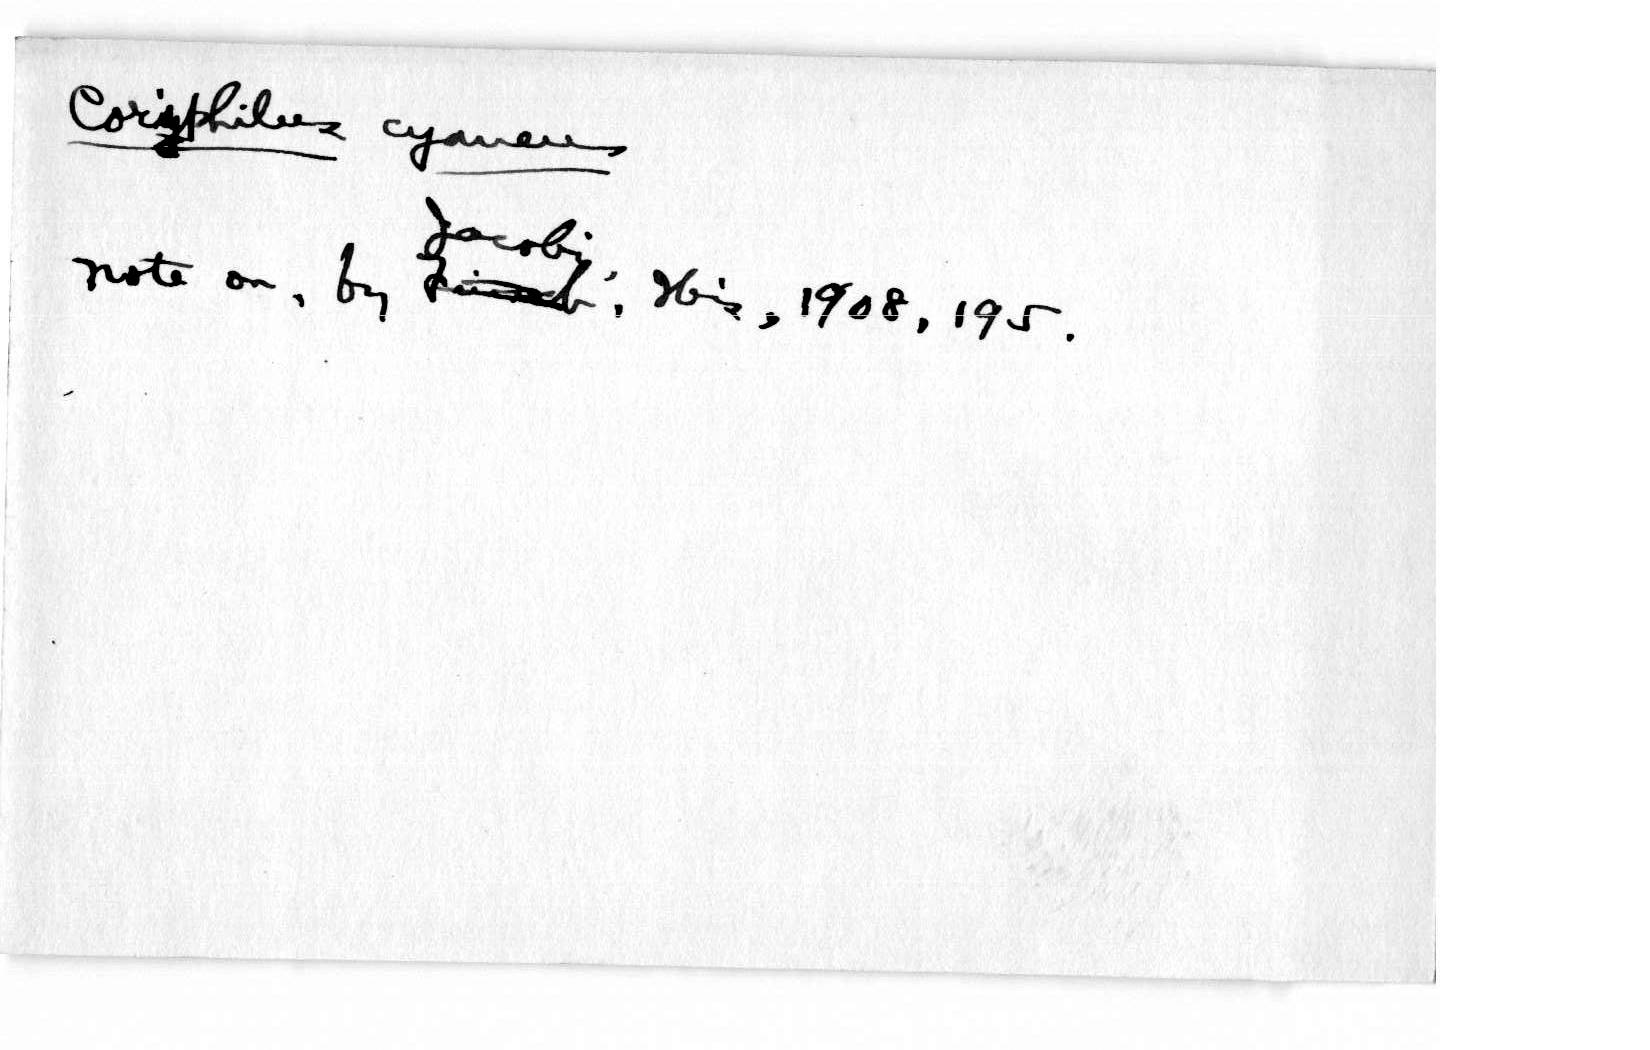 Coriphilus cyaneus
Jacobi
note on, by Finsch, Ibis, 1908, 195.